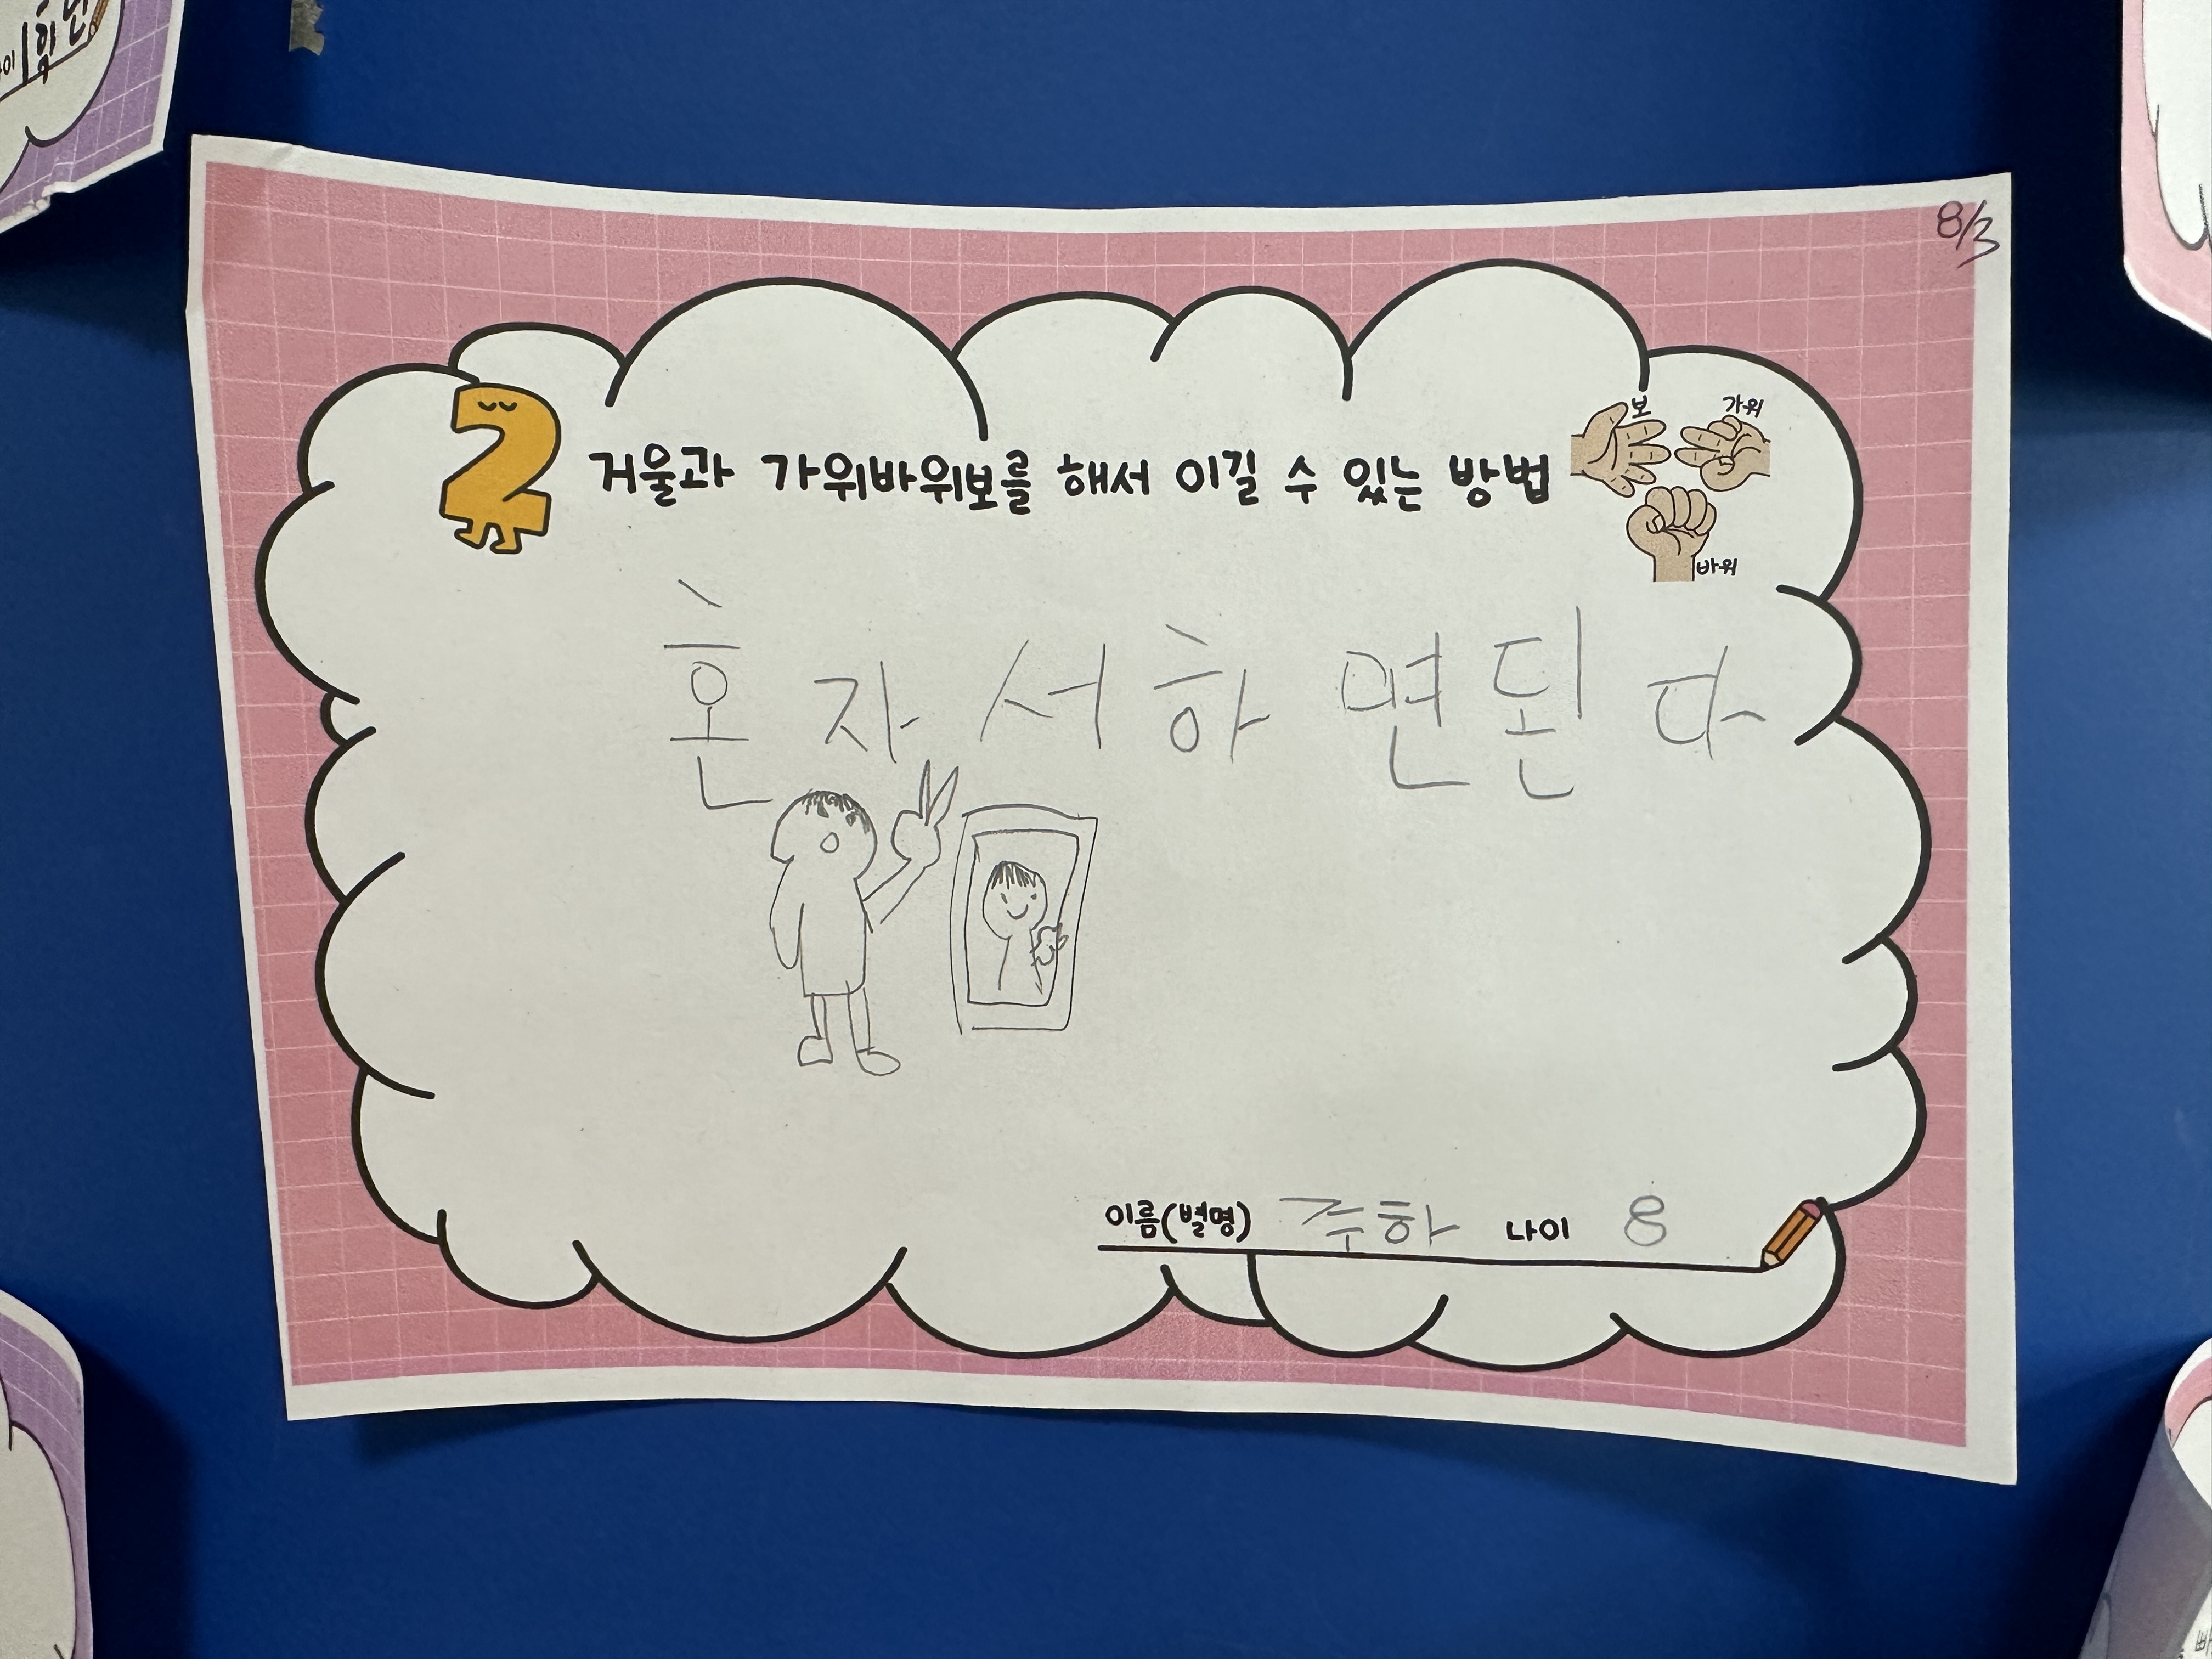 8/3
2 거울과 가위바위보를 해서 이길 수 있는 방법
보 가위
바위
혼자서하면된다
이름(별명) 주하 나이 8